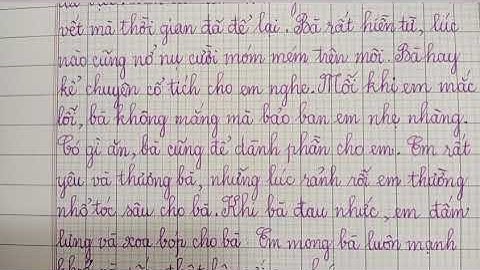 vết mà thời gian đã để lại. Bà rất hiền từ, lúc
nào cũng nở nụ cười móm mém trên môi. Bà hay
kể chuyện cổ tích cho em nghe. Mỗi khi em mắc
lỗi, bà không mắng mà bảo ban em nhẹ nhàng.
Có gì ăn, bà cũng để dành phần cho em. Em rất
yêu và thương bà, những lúc rảnh rỗi em thường
nhổ tóc sâu cho bà. Khi bà đau nhức, em đấm
lưng và xoa bóp cho bà Em mong bà luôn mạnh